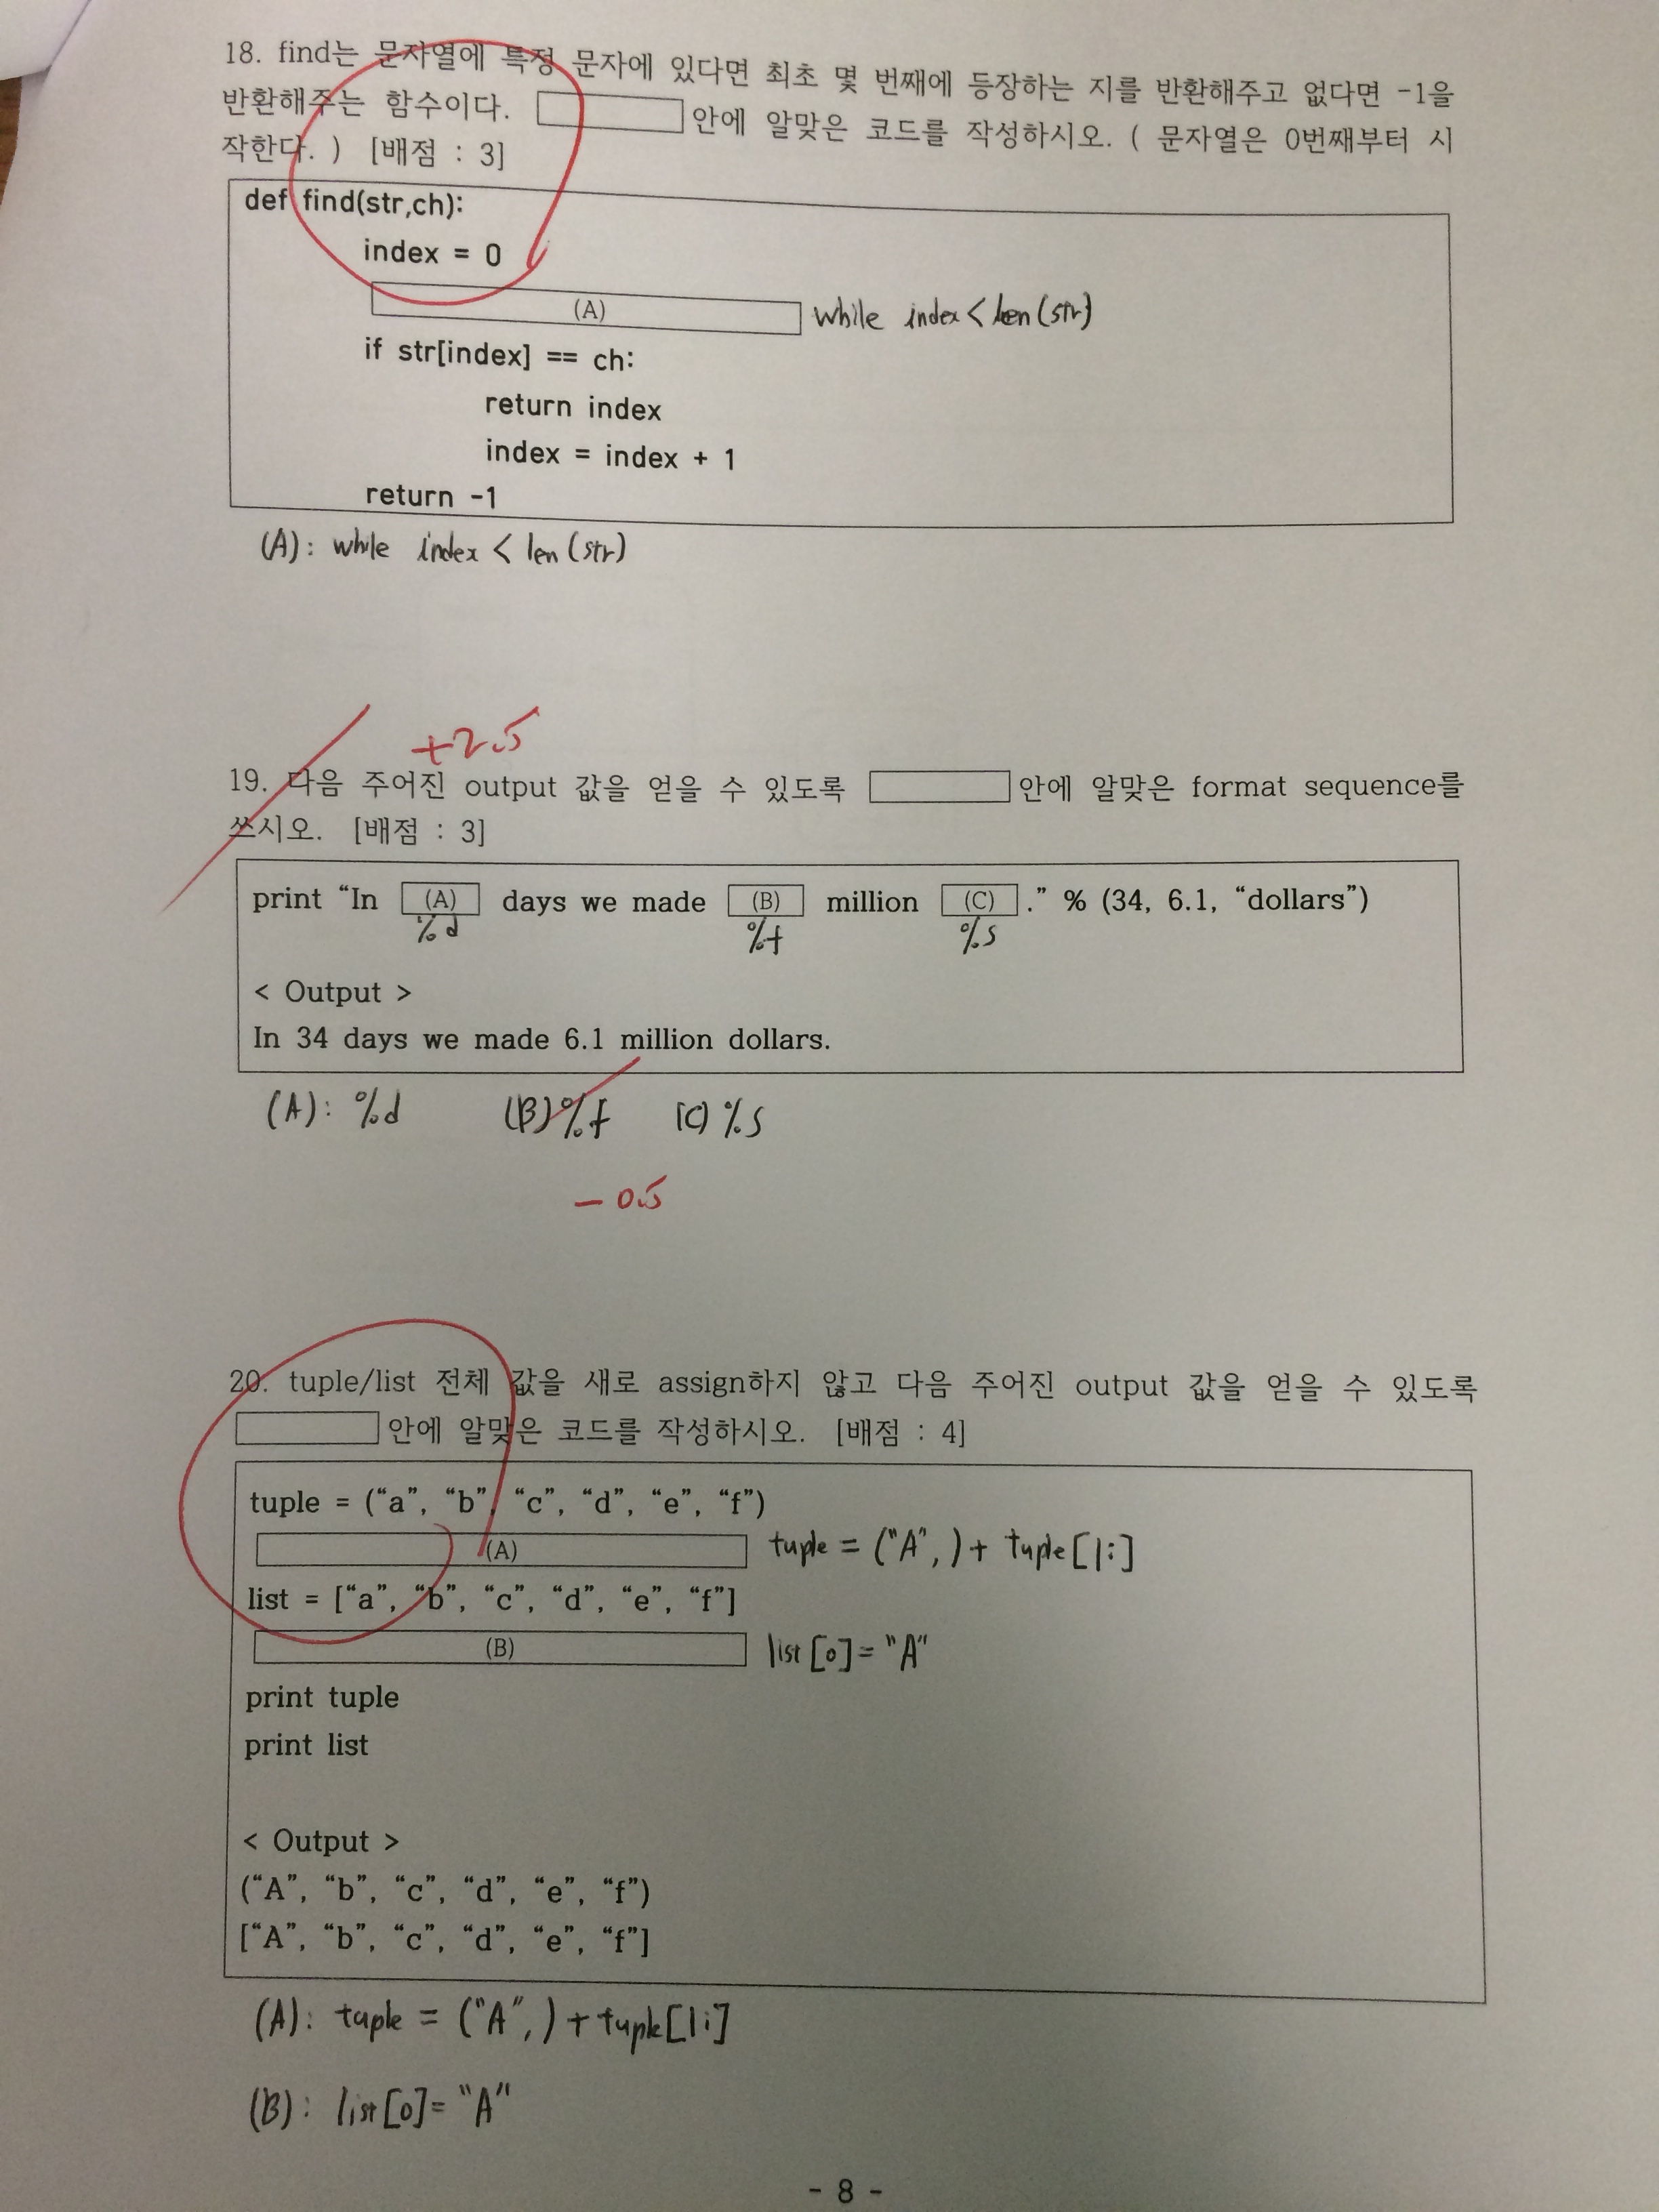 18. find는 문자열에 특정 문자에 있다면 최초 몇 번째에 등장하는 지를 반환해주고 없다면 -1을
반환해주는 함수이다. 안에 알맞은 코드를 작성하시오. ( 문자열은 0번째부터 시
작한다. ) [배점 : 3]
def find(str,ch):
index = 0
(A) while index < len(str)
if str[index] == ch:
return index
index = index + 1
return -1
(A): while index < len(str)
+2.5
19. 다음 주어진 output 값을 얻을 수 있도록 안에 알맞은 format sequence를
쓰시오. [배점 : 3]
print “In (A) days we made (B) million (C) .” % (34, 6.1, “dollars”)
%d %f %s
< Output >
In 34 days we made 6.1 million dollars.
(A): %d (B) %f (C) %s
-0.5
20. tuple/list 전체 값을 새로 assign하지 않고 다음 주어진 output 값을 얻을 수 있도록
안에 알맞은 코드를 작성하시오. [배점 : 4]
tuple = (“a”, “b”, “c”, “d”, “e”, “f”)
(A) tuple = ("A",)+ tuple[1:]
list = [“a”, “b”, “c”, “d”, “e”, “f”]
(B) list[0]= "A"
print tuple
print list
< Output >
(“A”, “b”, “c”, “d”, “e”, “f”)
[“A”, “b”, “c”, “d”, “e”, “f”]
(A): tuple = ("A",)+tuple[1:]
(B): list[0]= "A"
- 8 -